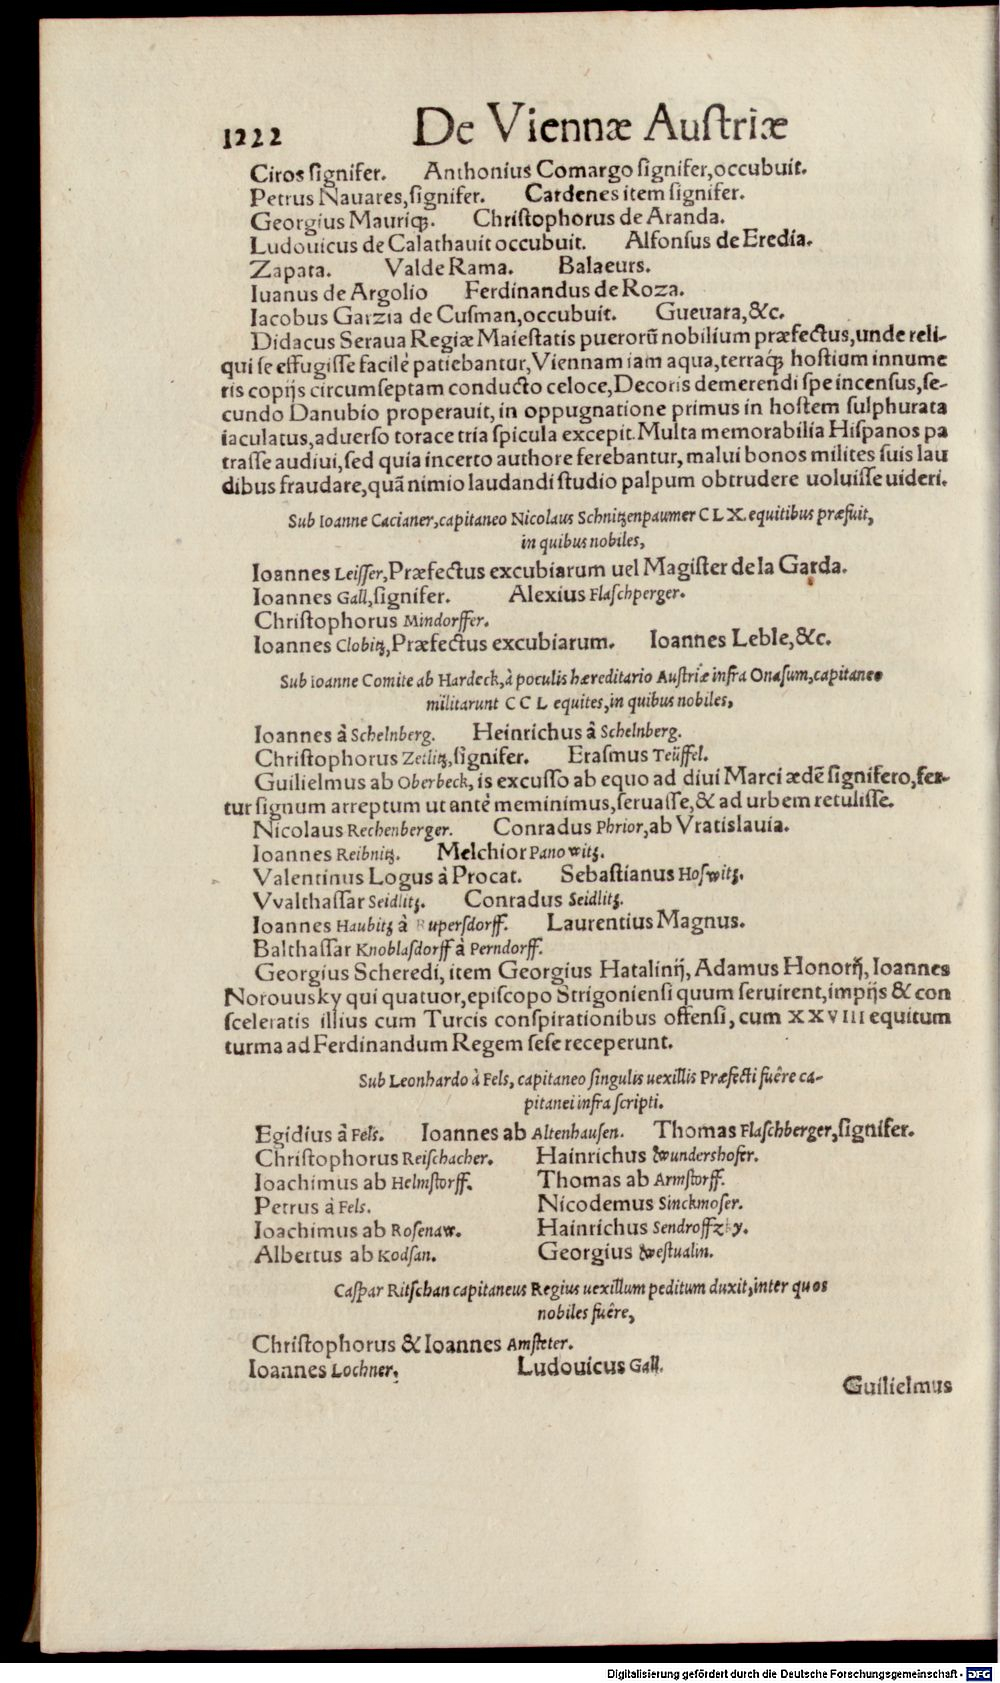 1222 De Viennæ Austriæ
Ciros signifer. Anthonius Comargo signifer, occubuit.
Petrus Nauares, signifer. Cardenes item signifer.
Georgius Mauriq́;. Christophorus de Aranda.
Ludouicus de Calathauit occubuit. Alfonsus de Eredia.
Zapata. Valde Rama. Balaeurs.
Iuanus de Argolio Ferdinandus de Roza.
Iacobus Garzia de Cusman, occubuit. Gueuara, &c.
Didacus Seraua Regiæ Maiestatis puerorũ nobilium præfectus, unde reli-
qui se effugisse facilè patiebantur, Viennam iam aqua, terraq́; hostium innume
ris copijs circumseptam conducto celoce, Decoris demerendi spe incensus, se-
cundo Danubio properauit, in oppugnatione primus in hostem sulphurata
iaculatus, aduerso torace tria spicula excepit. Multa memorabilia Hispanos pa
trasse audiui, sed quia incerto authore ferebantur, malui bonos milites suis lau
dibus fraudare, quã nimio laudandi studio palpum obtrudere uoluisse uideri.
Sub Ioanne Cacianer, capitaneo Nicolaus Schnitzenpaumer CLX. equitibus præfuit,
in quibus nobiles,
Ioannes Leisser, Præfectus excubiarum uel Magister de la Garda.
Ioannes Gall, signifer. Alexius Flaschperger.
Christophorus Mindorffer.
Ioannes Clobitz, Præfectus excubiarum. Ioannes Leble, &c.
Sub Ioanne Comite ab Hardeck, à poculis hæreditario Austriæ infra Onasum, capitaneo
militarunt CCL equites, in quibus nobiles,
Ioannes à Schelnberg. Heinrichus â Schelnberg.
Christophorus Zetlitz, signifer. Erasmus Teüffel.
Guilielmus ab Oberbeck, is excusso ab equo ad diui Marci ædẽ signifero, fer-
tur signum arreptum ut antè meminimus, seruasse, & ad urbem retulisse.
Nicolaus Rechenberger. Conradus Phrior, ab Vratislauia.
Ioannes Reibnitz. Melchior Panowitz.
Valentinus Logus à Procat. Sebastianus Hoswitz.
VValthassar Seidlitz. Conradus Seidlitz.
Ioannes Haubitz à Rupersdorff. Laurentius Magnus.
Balthassar Knoblasdorff à Perndorff.
Georgius Scheredi, item Georgius Hatalinij, Adamus Honorñ, Ioannes
Norouusky qui quatuor, episcopo Strigoniensi quum seruirent, impijs & con
sceleratis illius cum Turcis conspirationibus offensi, cum XXVIII equitum
turma ad Ferdinandum Regem sese receperunt.
Sub Leonhardo à Fels, capitaneo singulis uexillis Præfecti fuêre ca-
pitanei infra scripti.
Egidius â Fels. Ioannes ab Altenhausen. Thomas Flaschberger, signifer.
Christophorus Reischacher. Hainrichus Wundershofer.
Ioachimus ab Helmstorff. Thomas ab Armstorff.
Petrus à Fels. Nicodemus Sinckmoser.
Ioachimus ab Rosenaw. Hainrichus Sendroffzky.
Albertus ab Kodsan. Georgius Westualin.
Caspar Ritschan capitaneus Regius uexillum peditum duxit, inter quos
nobiles fuêre,
Christophorus & Ioannes Amsteter.
Ioannes Lochner. Ludouicus Gall.
Guilielmus
Digitalisierung gefördert durch die Deutsche Forschungsgemeinschaft - DFG